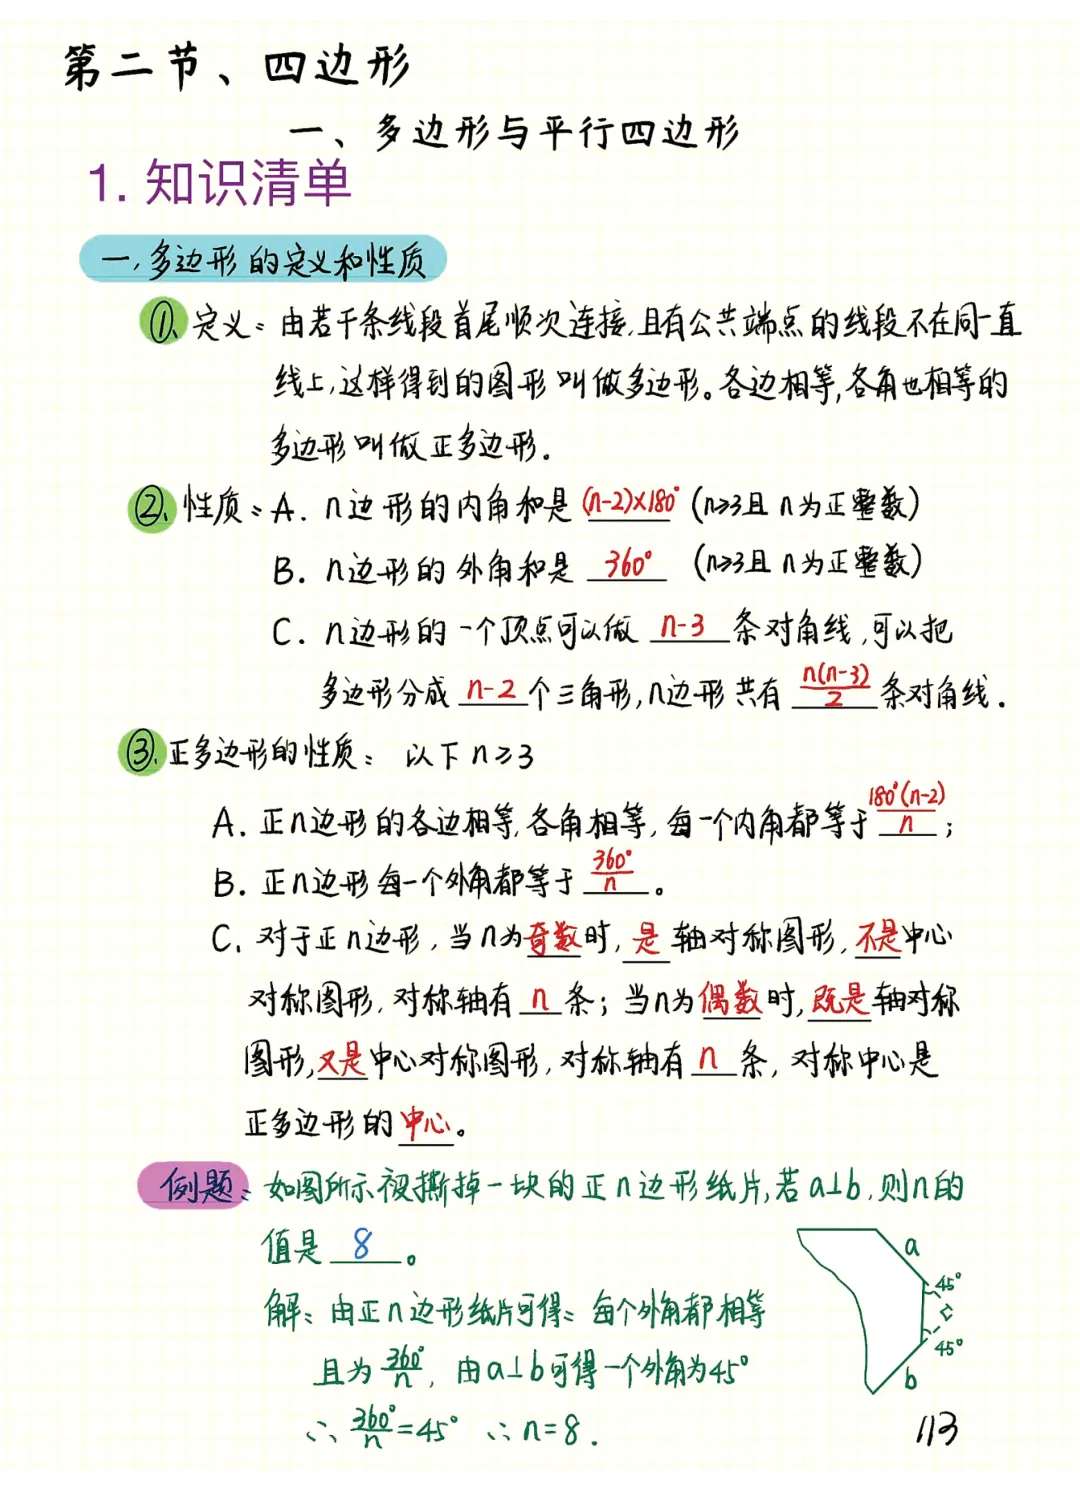 第二节、四边形
一、多边形与平行四边形
1. 知识清单
一、多边形的定义和性质
①、定义：由若干条线段首尾顺次连接，且有公共端点的线段不在同一直
线上，这样得到的图形叫做多边形。各边相等，各角也相等的
多边形叫做正多边形.
②、性质：A. n边形的内角和是 (n-2)×180° (n≥3且n为正整数)
B. n边形的外角和是 360° (n≥3且n为正整数)
C. n边形的一个顶点可以做 n-3 条对角线，可以把
多边形分成 n-2 个三角形，n边形共有 n(n-3)/2 条对角线.
③、正多边形的性质： 以下n≥3
A. 正n边形的各边相等，各角相等，每一个内角都等于 180°(n-2)/n ；
B. 正n边形每一个外角都等于 360°/n 。
C. 对于正n边形，当n为奇数时，是轴对称图形，不是中心
对称图形，对称轴有 n 条；当n为偶数时，既是轴对称
图形，又是中心对称图形，对称轴有 n 条，对称中心是
正多边形的中心。
例题：如图所示被撕掉一块的正n边形纸片，若a⊥b，则n的
值是 8 。
解：由正n边形纸片可得：每个外角都相等
且为 360°/n，由a⊥b可得一个外角为45°
∴ 360°/n=45° ∴n=8.
a
45°
45°
b
113